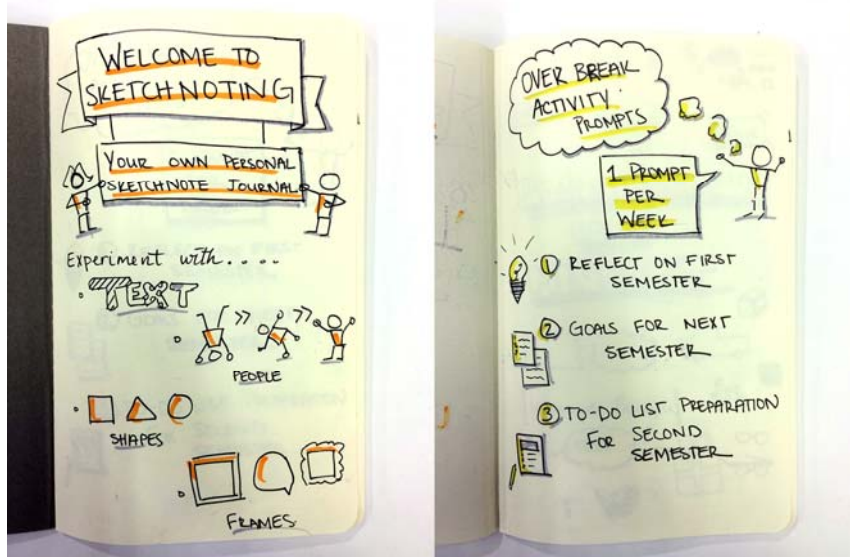 WELCOME TO
SKETCHNOTING
YOUR OWN PERSONAL
SKETCHNOTE JOURNAL
Experiment with....
TEXT
PEOPLE
SHAPES
FRAMES
OVER BREAK
ACTIVITY
PROMPTS
1 PROMPT
PER
WEEK
1 REFLECT ON FIRST
SEMESTER
2 GOALS FOR NEXT
SEMESTER
3 TO-DO LIST PREPARATION
FOR SECOND
SEMESTER